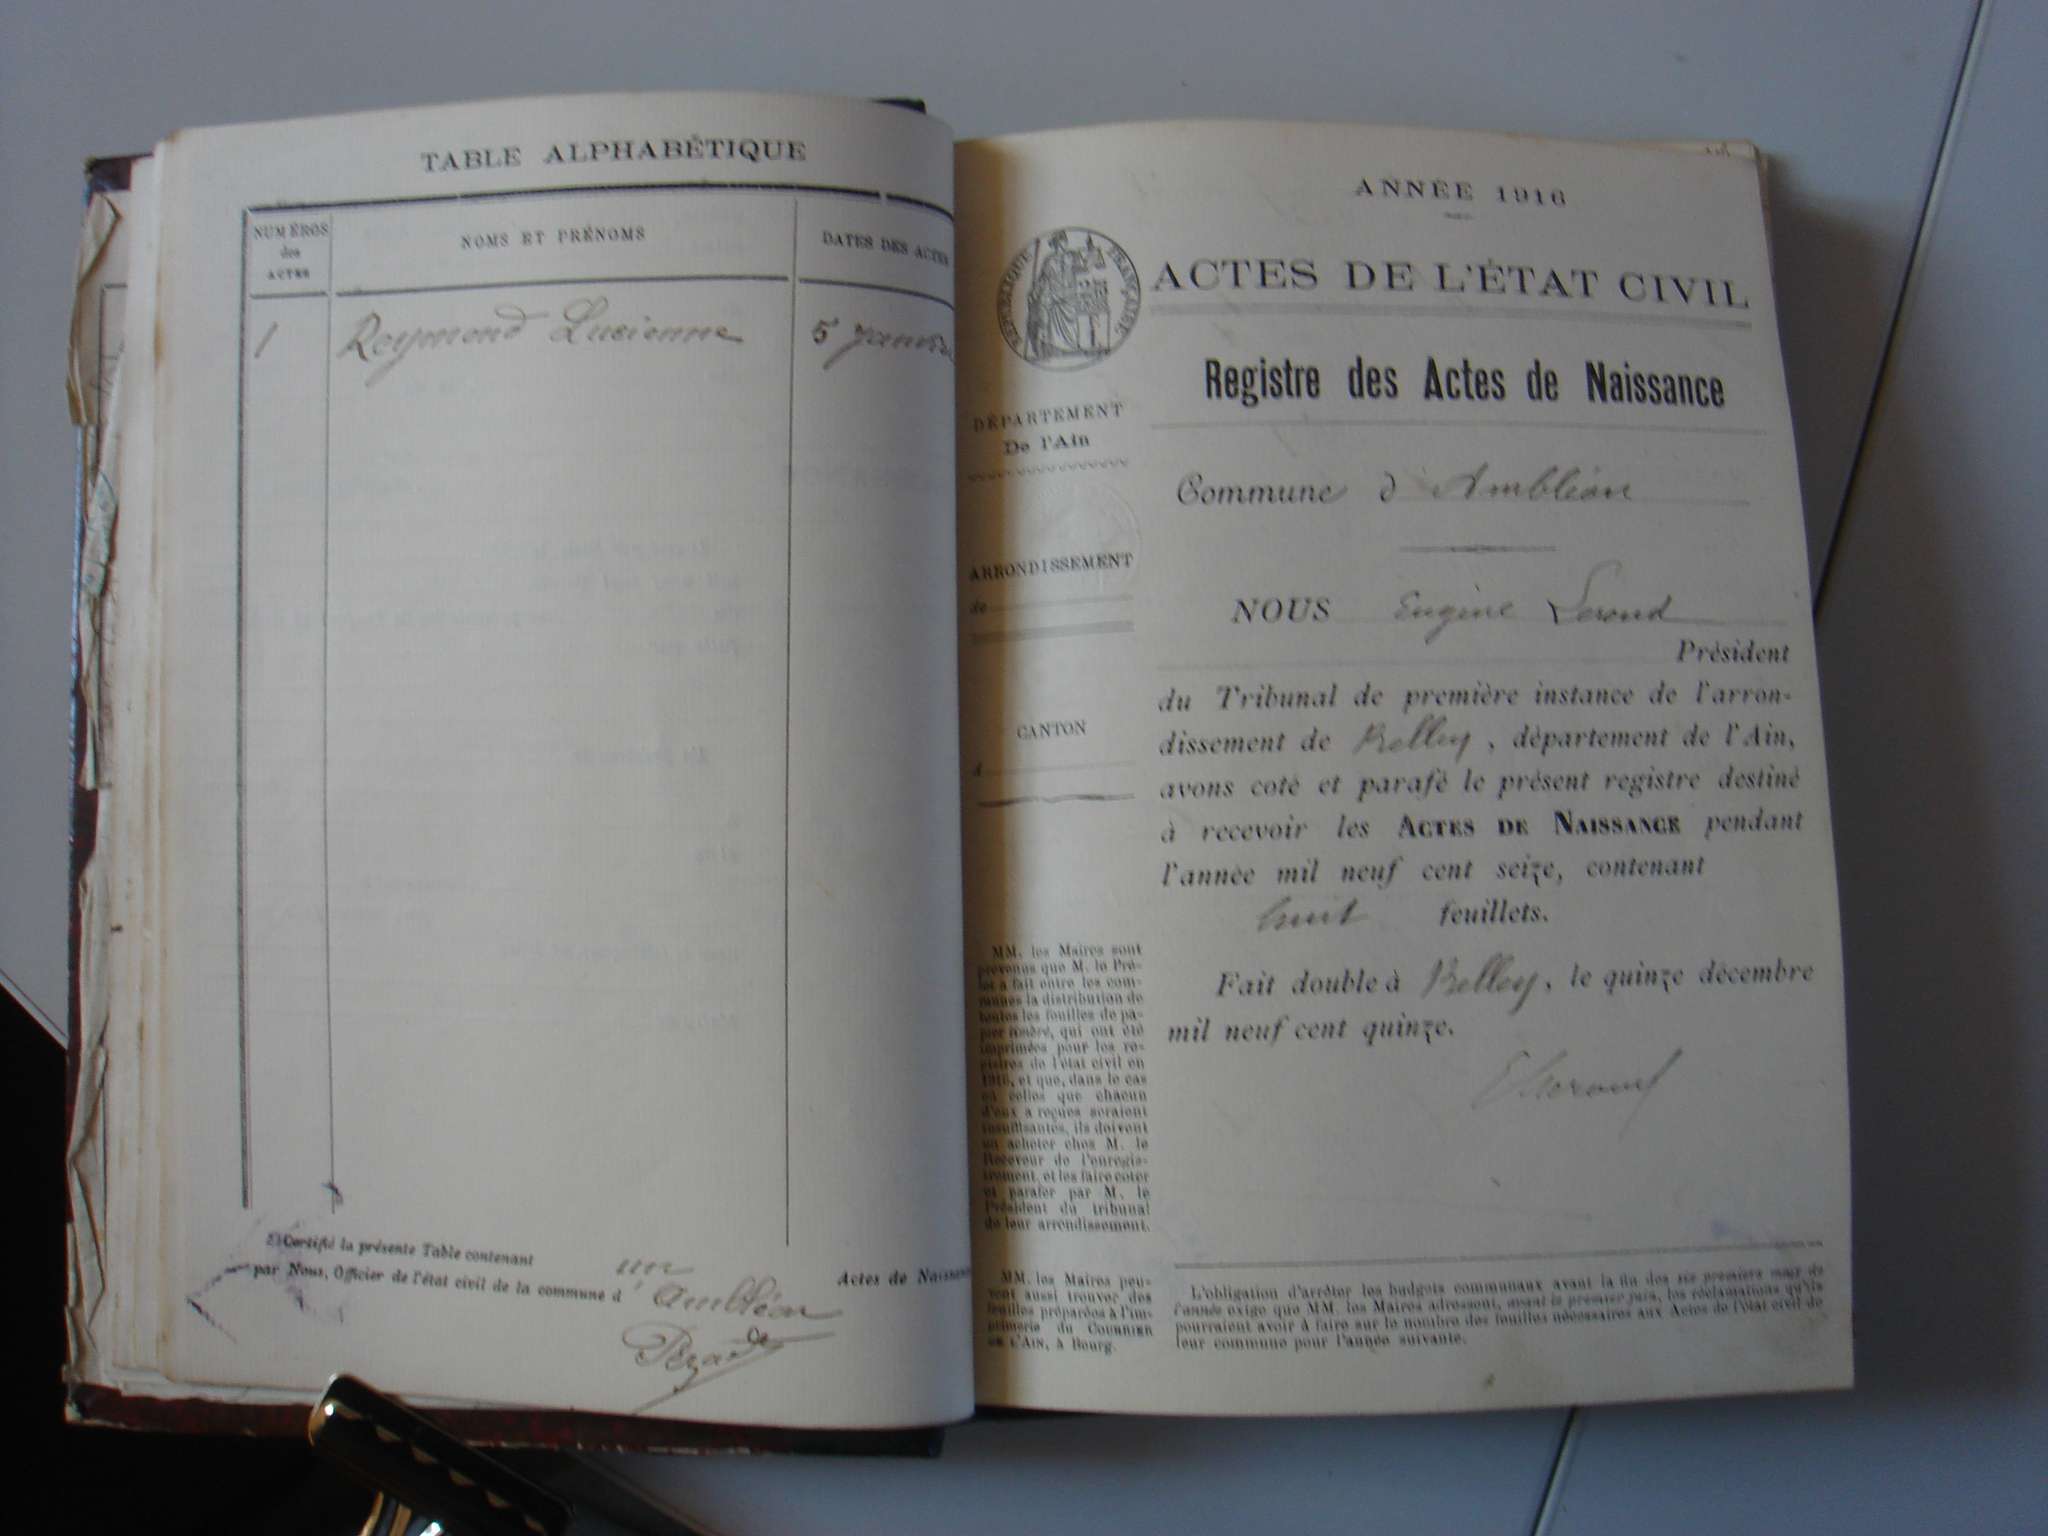 TABLE ALPHABÉTIQUE
NUMÉROS
des
ACTES
NOMS ET PRÉNOMS
DATES DES ACTES
1 Reymond Lucienne 5 Janvie
Certifié la présente Table contenant un Actes de Naissan
par Nous, Officier de l'état civil de la commune d'Ambléon
ANNÉE 1916
RÉPUBLIQUE FRANÇAISE
ACTES DE L'ÉTAT CIVIL
Registre des Actes de Naissance
DÉPARTEMENT
De l'Ain
ARRONDISSEMENT
de
CANTON
d
Commune d'Ambléon
NOUS Eugène Lerond
Président
du Tribunal de première instance de l'arron-
dissement de Belley, département de l'Ain,
avons coté et parafé le présent registre destiné
à recevoir les ACTES DE NAISSANCE pendant
l'année mil neuf cent seize, contenant
huit feuillets.
Fait double à Belley, le quinze décembre
mil neuf cent quinze.
ELerond
MM. les Maires sont
prévenus que M. le Pré-
fet a fait entre les com-
munes la distribution de
toutes les feuilles de pa-
pier timbré, qui ont été
imprimées pour les re-
gistres de l'état civil en
1916, et que, dans le cas
où celles que chacun
d'eux a reçues seraient
insuffisantes, ils doivent
en acheter chez M. le
Receveur de l'enregis-
trement, et les faire coter
et parafer par M. le
Président du tribunal
de leur arrondissement.
MM. les Maires peu-
vent aussi trouver des
feuilles préparées à l'im-
primerie du COURRIER
DE L'AIN, à Bourg.
L'obligation d'arrêter les budgets communaux avant la fin des six premiers mois de
l'année exige que MM. les Maires adressent, avant le premier juin, les réclamations qu'ils
pourraient avoir à faire sur le nombre des feuilles nécessaires aux Actes de l'état civil de
leur commune pour l'année suivante.